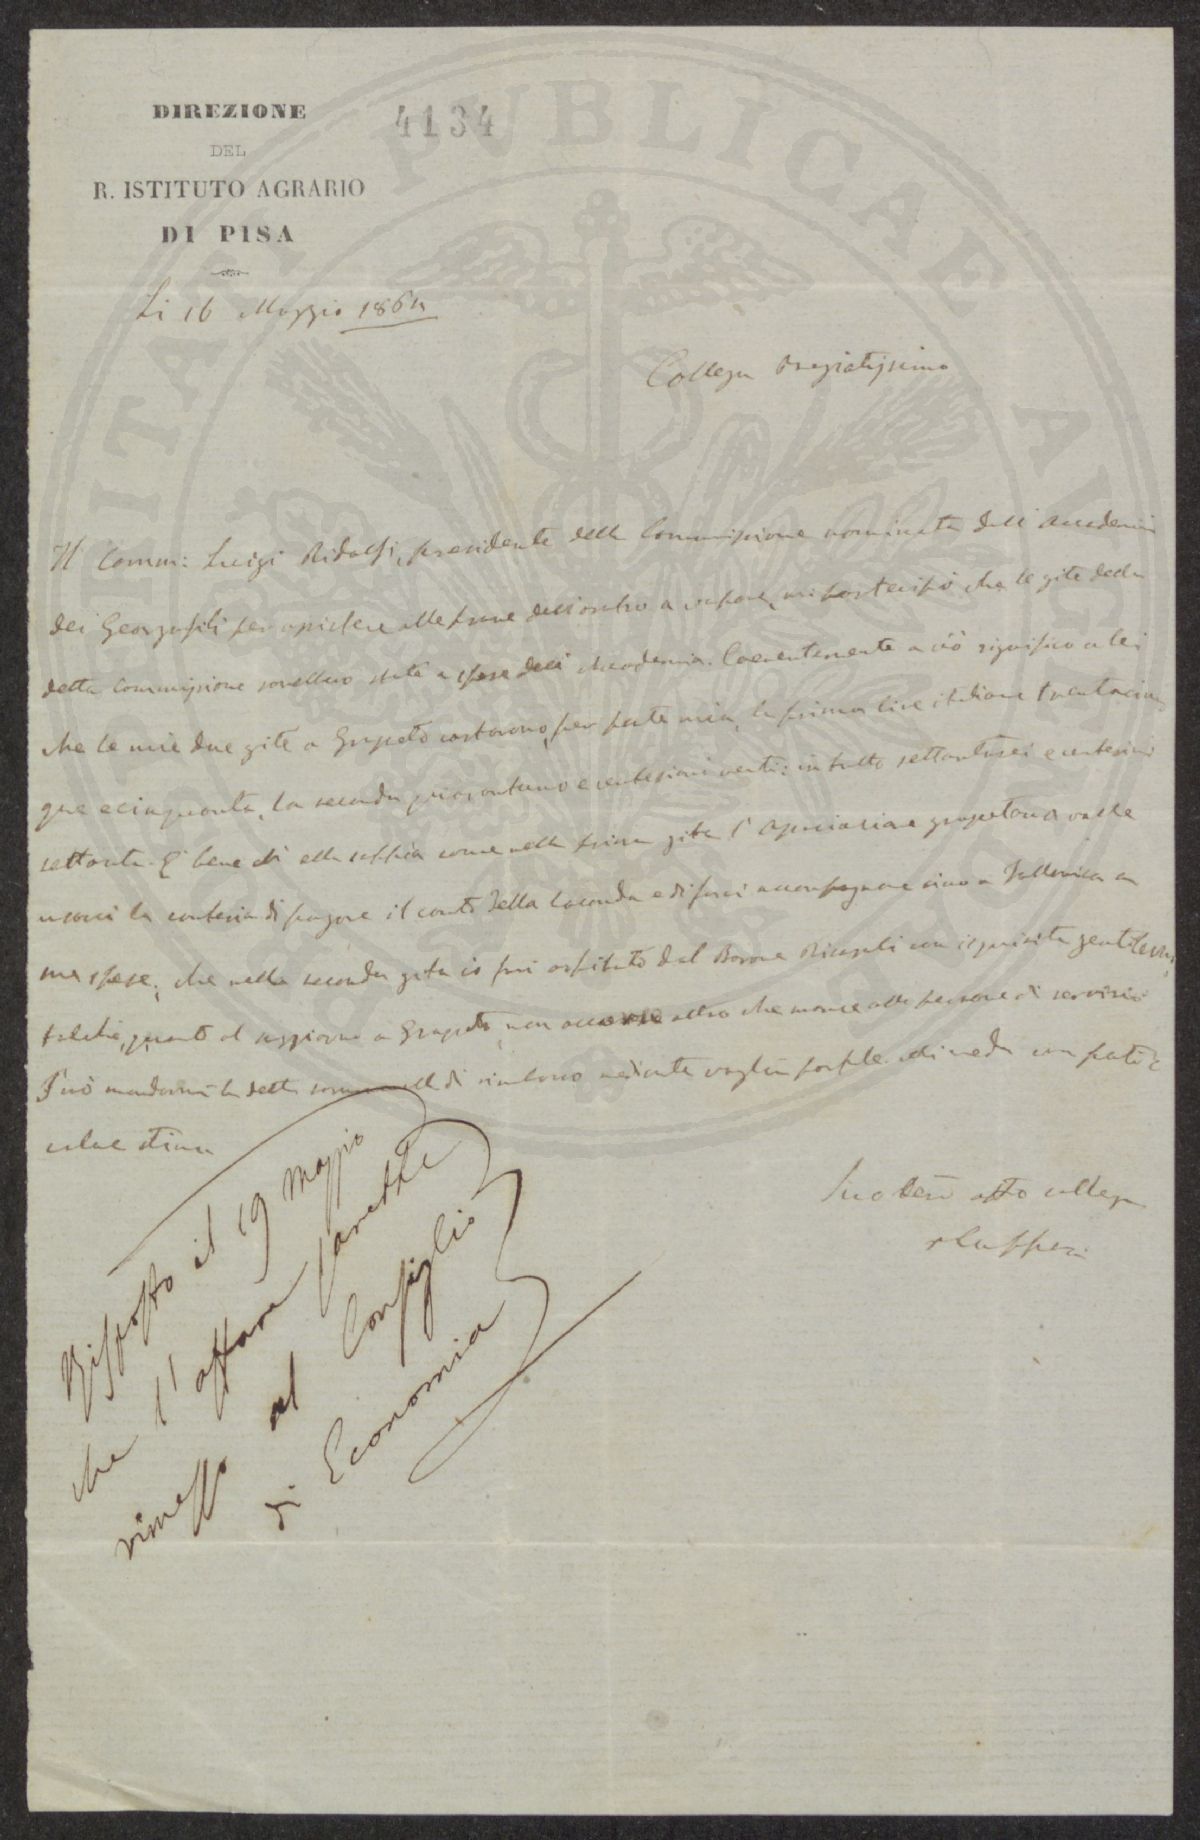 DIREZIONE
DEL
R. ISTITUTO AGRARIO
DI PISA
4134
PUBLICAE
Li 16 Maggio 1864
Collega Pregiatissimo
Il Comm: Luigi Ridolfi, presidente della Commissione nominata dall' Accademia
dei Georgofili per assistere alle prove dell'aratro a vapore, mi che le gite della
detta Commissione sarebbero state a spese dell' Accademia. Coerentemente a ciò significo a lei
che le mie due gite a Grosseto costarono, per parte mia, la prima lire italiane trentacin
que e cinquanta, la seconda quarantuno e centesimi venti: in tutto settantasei e centesimi
settanta. È bene ch' ella sappia come nella prima gita l' Associazione grossetana volle
usarci la cortesia di pagare il conto della locanda e di farci accompagnare sino a Follonica a
sue spese; che nella seconda gita io fui ospitato dal Barone Ricasoli con isquisita gentilezza,
talché, quanto al soggiorno a Grosseto, non occorse altro che mance alle persone di servizio
Può mandarmi la detta somma di rimborso mediante vaglia postale. Mi creda con parti
colare stima
Suo dev. aff.o collega
Risposto il 19 Maggio
che l' affare sarebbe
rimesso al Consiglio
di Economia